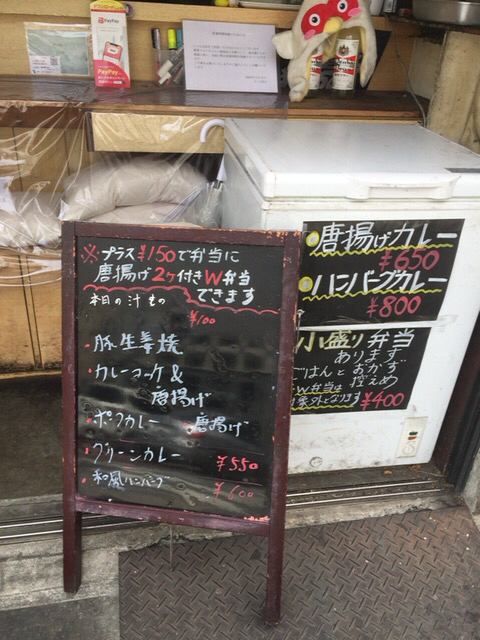 PayPay
PayPay
※プラス¥150で弁当に
唐揚げ2ヶ付きW弁当
できます
本日の汁もの
¥100
・豚生姜焼
・カレーコロッケ&
唐揚げ
・ポークカレー 唐揚げ
・グリーンカレー ¥550
・和風ハンバーグ ¥600
唐揚げカレー
¥650
ハンバーグカレー
¥800
小盛り弁当
あります
ごはんとおかず
W弁当は 控えめ
対象外となります ¥400